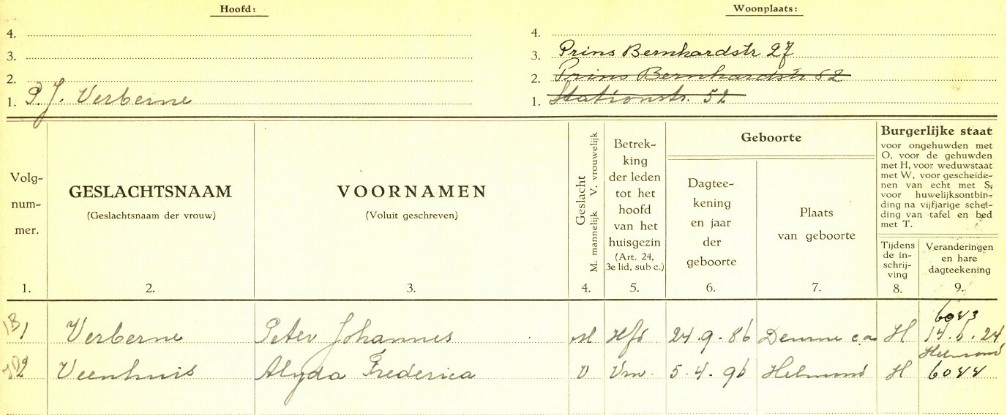 Hoofd:
4.
3.
2.
1. P. J. Verberne
Woonplaats:
4.
3. Prins Bernhardstr 27
2. Prins Bernhardstr 52
1. Stationstr. 52
Volg-
num-
mer.
1.
GESLACHTSNAAM
(Geslachtsnaam der vrouw)
2.
VOORNAMEN
(Voluit geschreven)
3.
Geslacht
M. mannelijk V. vrouwelijk
4.
Betrek-
king
der leden
tot het
hoofd
van het
huisgezin
(Art. 24,
3e lid, sub c.)
5.
Geboorte
Dagtee-
kening
en jaar
der
geboorte
6.
Plaats
van geboorte
7.
Burgerlijke staat
voor ongehuwden met
O, voor de gehuwden
met H, voor weduwstaat
met W, voor gescheide-
nen van echt met S,
voor huwelijksontbin-
ding na vijfjarige schei-
ding van tafel en bed
met T.
Tijdens
de in-
schrij-
ving
8.
Veranderingen
en hare
dagteekening
9.
1 Verberne Peter Johannes M Hfd 24.9.86 Deurne c.a H 6043 14.6.24 Helmond
2 Veenhuis Alyda Frederica V Vrw. 5.4.96 Helmond H 6044